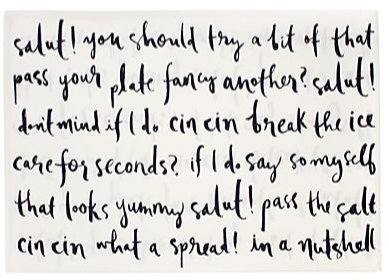 salut! you should try a bit of that
pass your plate fancy another? salut!
dont mind if I do cin cin break the ice
care for seconds? if I do say so myself
that looks yummy salut! pass the salt
cin cin what a spread! in a nutshell